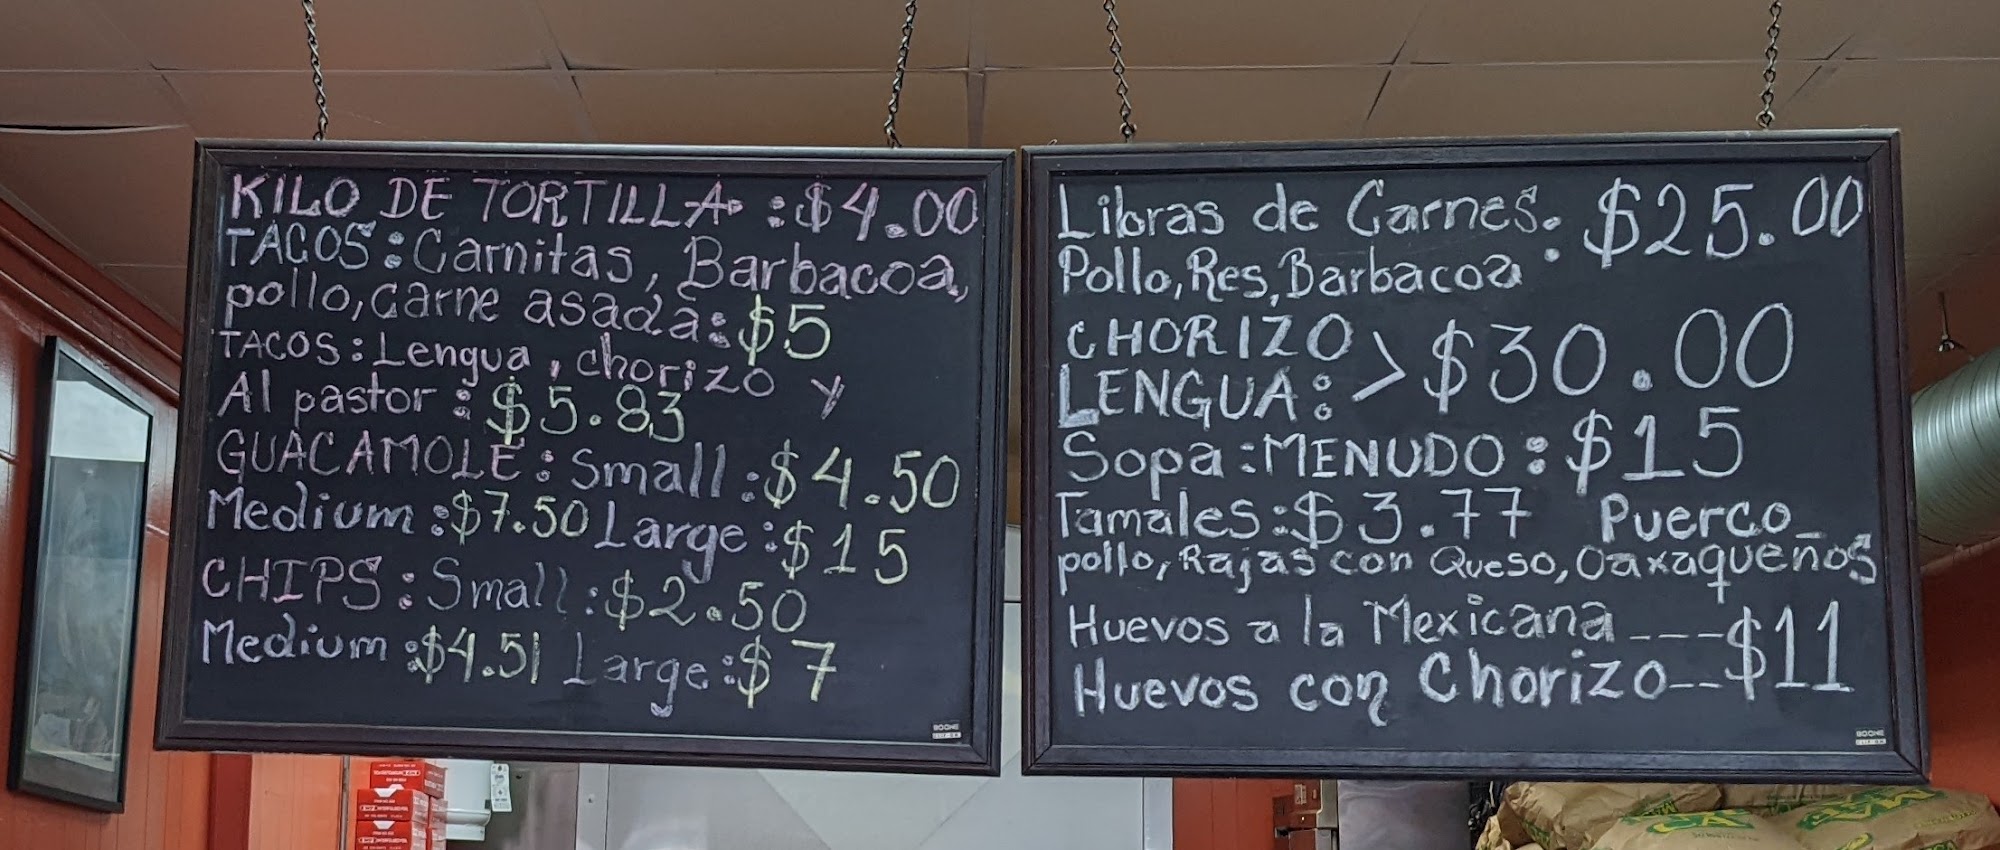 KILO DE TORTILLA : $4.00
TACOS : Carnitas, Barbacoa,
pollo, carne asada : $5
TACOS : Lengua, chorizo y
Al pastor : $5.83
GUACAMOLE : Small : $4.50
Medium : $7.50 Large : $15
CHIPS : Small : $2.50
Medium : $4.51 Large : $7
BOONE
Libras de Carnes : $25.00
Pollo, Res, Barbacoa
CHORIZO > $30.00
LENGUA :
Sopa : MENUDO : $15
Tamales : $3.77 Puerco_
pollo, Rajas con Queso, Oaxaqueños
Huevos a la Mexicana ---$11
Huevos con Chorizo---
BOONE